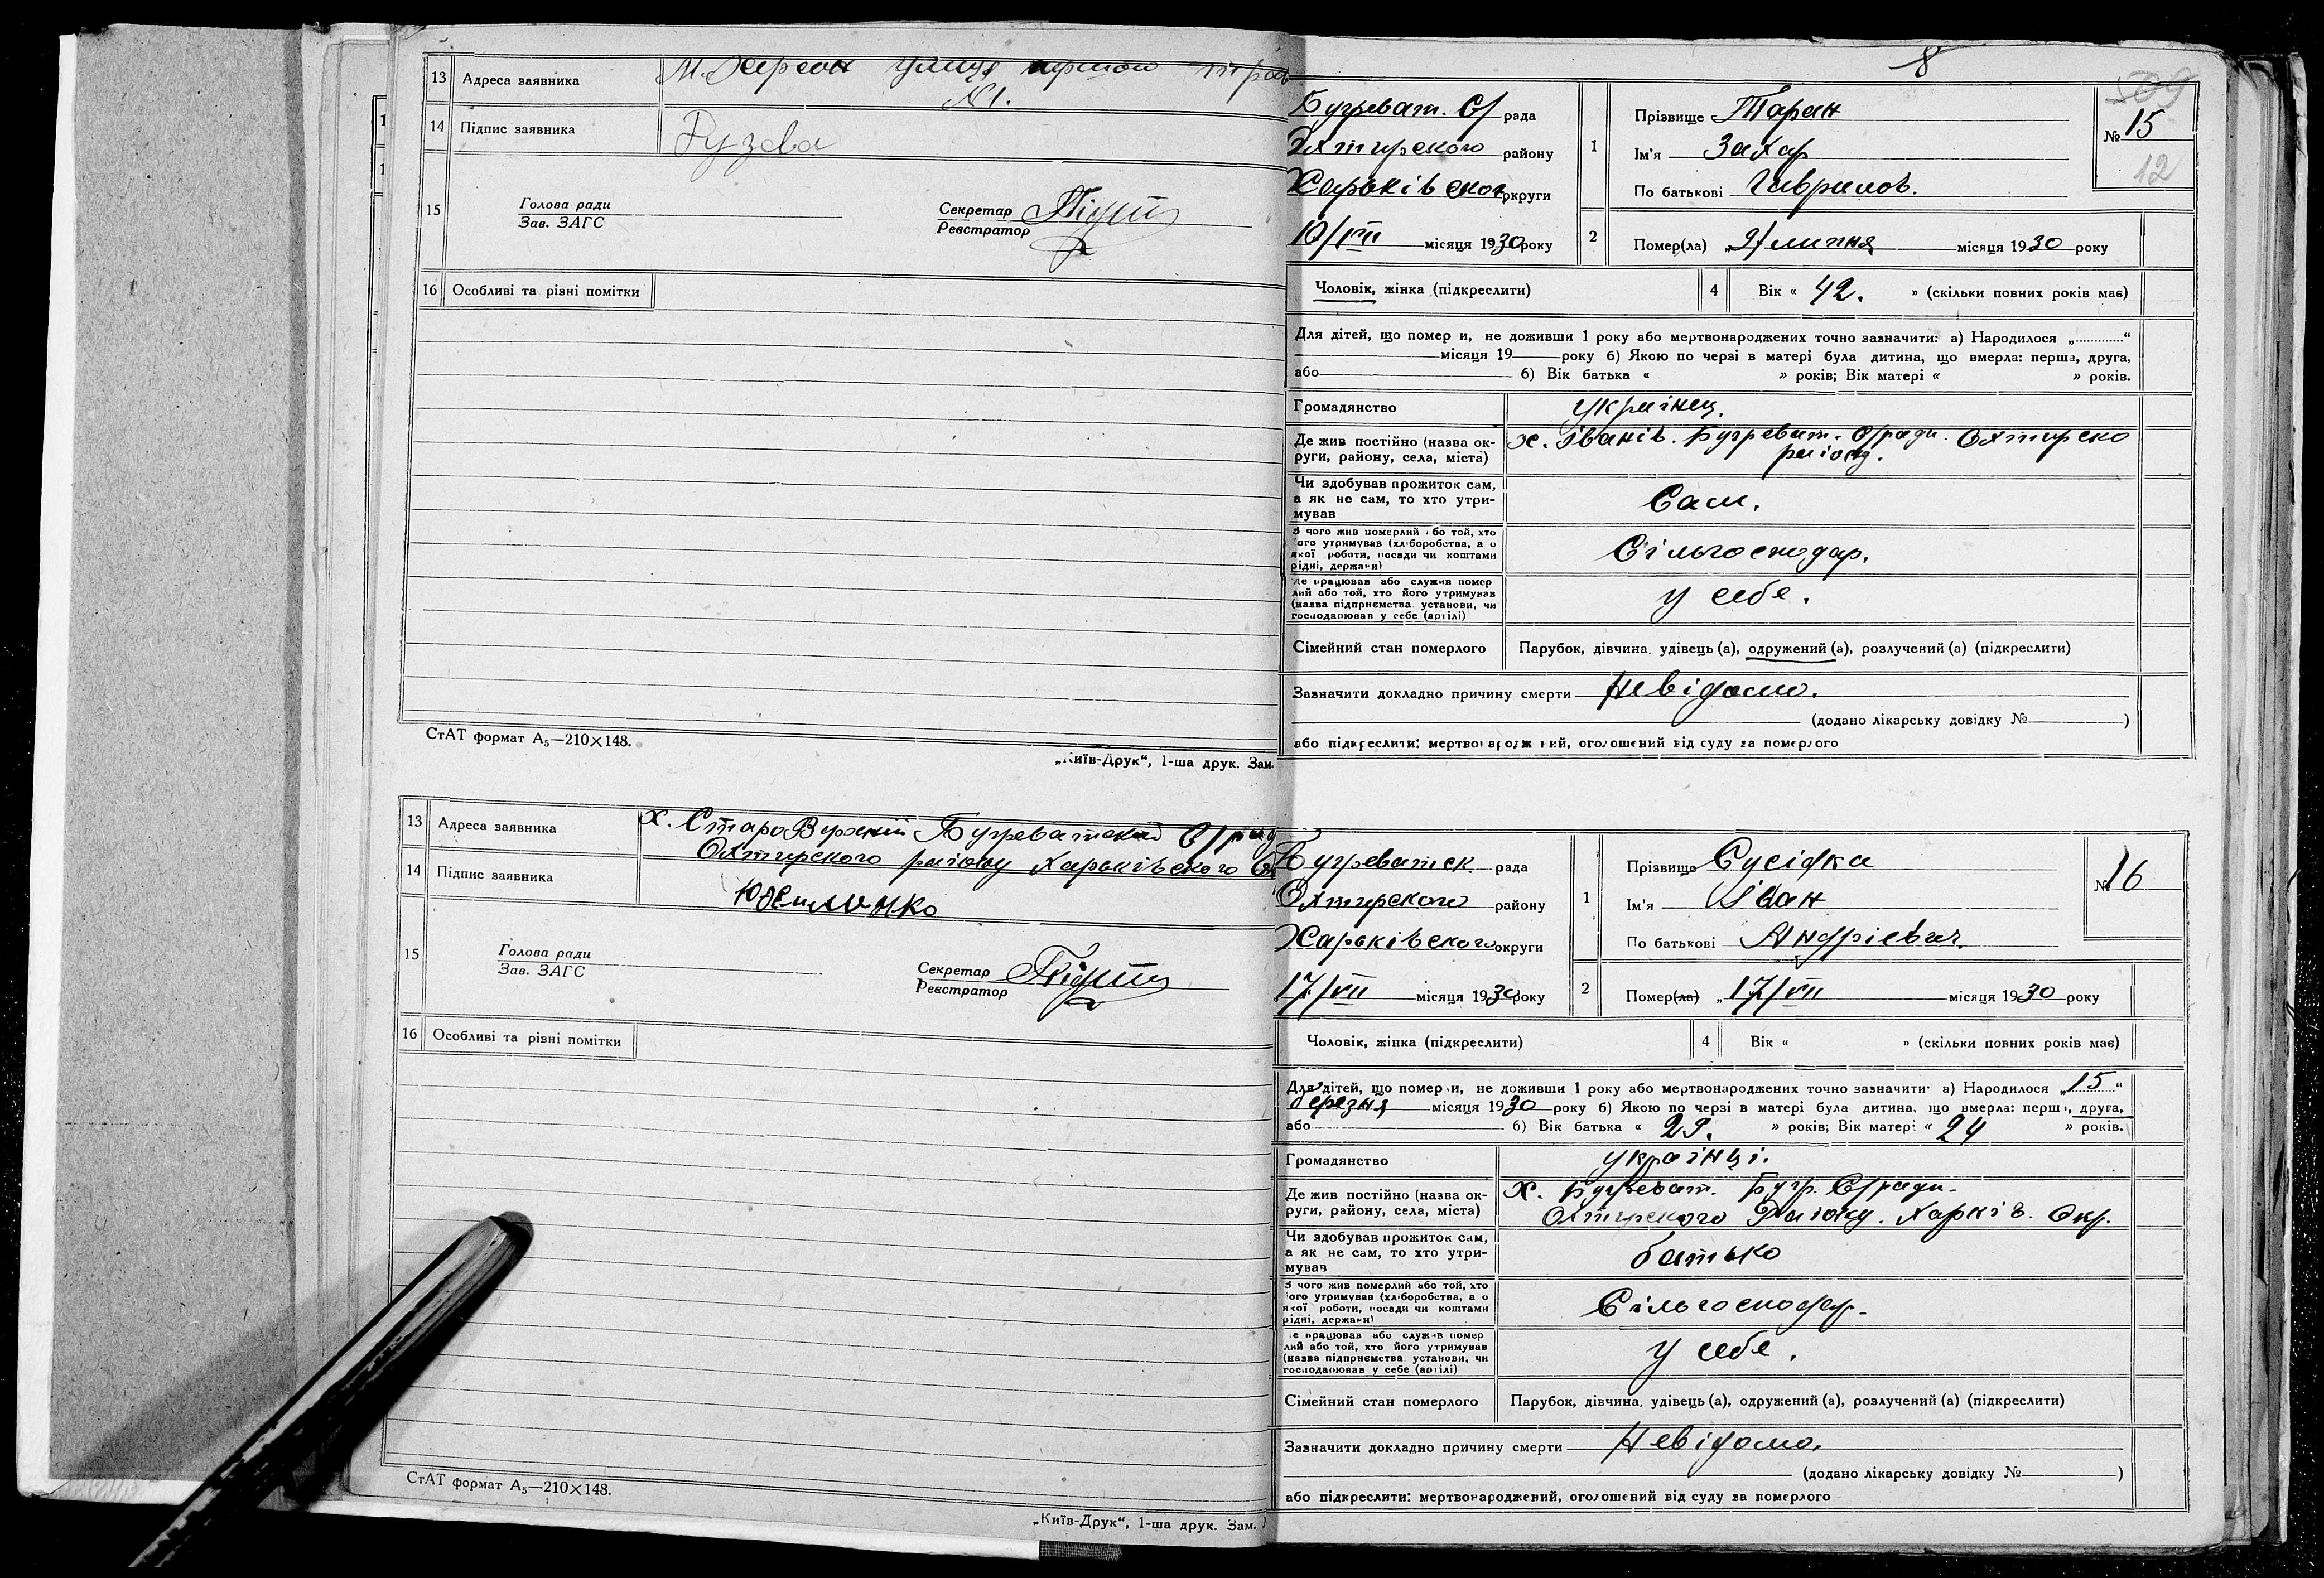 13 Адреса заявника М. Херсон улиця першого трав
№1.
14 Підпис заявника Рузова
15 Голова ради
Зав. ЗАГС
Секретар
Реєстратор
16 Особливі та різні помітки
СтАТ формат А5—210×148.
„Київ-Друк“, 1-ша друк. Зам.
13 Адреса заявника х. Старо Верхній Бугреватської С/рад
Охтирского району Харьківского
14 Підпис заявника
15 Голова ради
Зав. ЗАГС
Секретар
Реєстратор
16 Особливі та різні помітки
СтАТ формат А5—210×148.
„Київ-Друк“, 1-ша друк. Зам.
8
509
Бугреват. С/ рада
Охтирского району
Харьківског округи
10/VII місяця 1930 року
1 Прізвище Таран
Ім'я Захар
По батькові Гаврилов.
№ 15
12
2 Помер(ла) „9/липня місяця 1930 року
Чоловік, жінка (підкреслити) 4 Вік « 42. » (скільки повних років має)
Для дітей, що померли, не доживши 1 року або мертвонароджених точно зазначити: а) Народилося „............“
місяця 19 року б) Якою по черзі в матері була дитина, що вмерла: перша, друга,
або б) Вік батька « » років; Вік матері « » років.
Громадянство українец.
Де жив постійно (назва ок-
руги, району, села, міста) х. Іванів. Бугреват. С/ради. Охтирско
району.
Чи здобував прожиток сам,
а як не сам, то хто утри-
мував Сам.
З чого жив померлий або той, хто
його утримував (хліборобства, а о
якої роботи, посади чи коштами
рідні, держави) Сільгосподар.
Де працював або служив помер
лий або той, хто його утримував
(назва підприємства установи, чи
господарював у себе (артілі) у себе.
Сімейний стан померлого Парубок, дівчина, удівець (а), одружений (а), розлучений (а) (підкреслити)
Зазначити докладно причину смерти Невідомо.
(додано лікарську довідку № )
або підкреслити: мертвонароджений, оголошений від суду за померлого
Бугреватск. рада
Охтирского району
Харьківского округи
17/VII місяця 1930 року
1 Прізвище Сусідка
Ім'я Іван
По батькові Андрієвич.
№ 16
2 Помер(ла) „17/VII місяця 1930 року
Чоловік, жінка (підкреслити) 4 Вік « » (скільки повних років має)
Для дітей, що померли, не доживши 1 року або мертвонароджених точно зазначити: а) Народилося „15“
березня місяця 1930 року б) Якою по черзі в матері була дитина, що вмерла: перша, друга,
або б) Вік батька « 29. » років; Вік матері « 24 » років.
Громадянство українці.
Де жив постійно (назва ок-
руги, району, села, міста) х. Бугреват. Бугр. С/ради.
Охтирского Району. Харків. Окр.
Чи здобував прожиток сам,
а як не сам, то хто утри-
мував батько
З чого жив померлий або той, хто
його утримував (хліборобства, а о
якої роботи, посади чи коштами
рідні, держави) Сільгосподар.
Де працював або служив помер
лий або той, хто його утримував
(назва підприємства установи, чи
господарював у себе (артілі) у себе.
Сімейний стан померлого Парубок, дівчина, удівець (а), одружений (а), розлучений (а) (підкреслити)
Зазначити докладно причину смерти Невідомо.
(додано лікарську довідку № )
або підкреслити: мертвонароджений, оголошений від суду за померлого